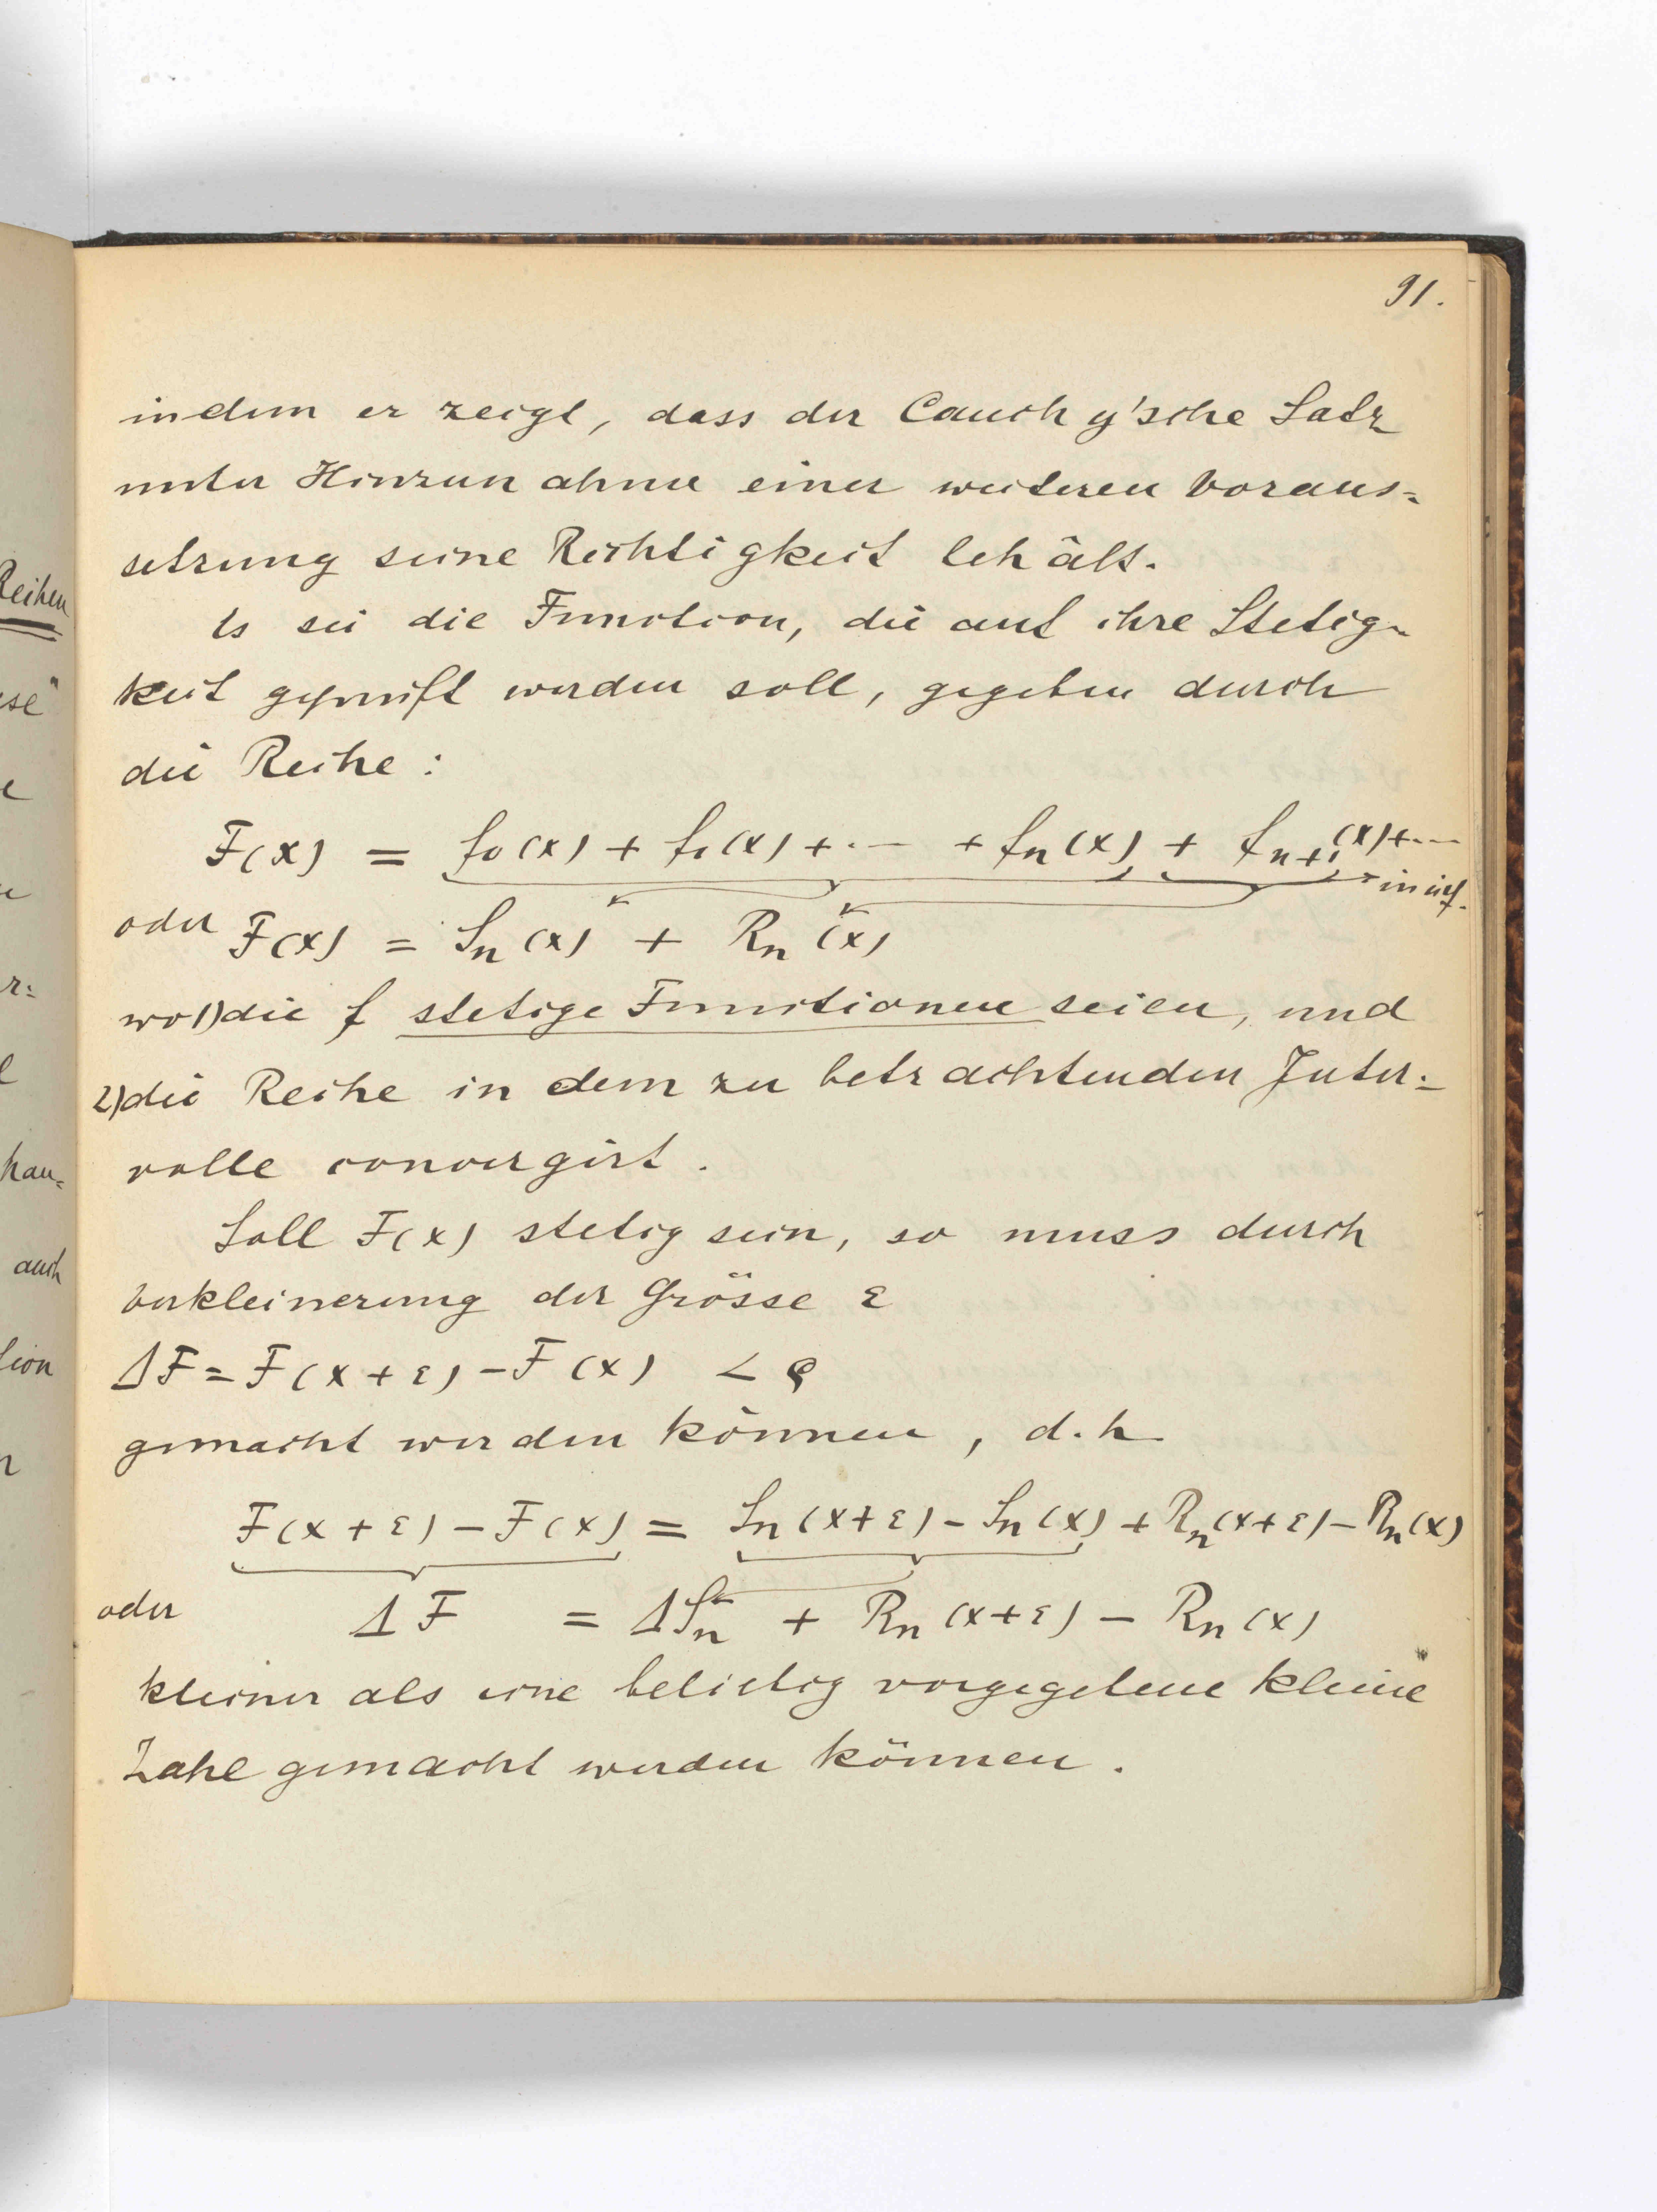 91.
indem er zeigt, dass der Cauchy'sche Satz
unter Hinzunahme einer weiteren Voraus=
setzung seine Richtigkeit behält.
Es sei die Function, die auf ihre Stetig-
keit geprüft werden soll, gegeben durch
die Reihe :
F(x) = f₀(x) + f₁(x) + ··· + fₙ(x) + fₙ₊₁(x) + ···
in inf.
oder F(x) = Sₙ(x) + Rₙ(x)
wo 1) die f stetige Functionen seien, und
2) die Reihe in dem zu betrachtenden Inter=
valle convergirt.
Soll F(x) stetig sein, so muss durch
Verkleinerung der Grösse ε
ΔF = F(x+ε) - F(x) < ρ
gemacht werden können, d.h.
F(x+ε) - F(x) = Sₙ(x+ε) - Sₙ(x) + Rₙ(x+ε) - Rₙ(x)
oder ΔF = ΔSₙ + Rₙ(x+ε) - Rₙ(x)
kleiner als eine beliebig vorgegebene kleine
Zahl gemacht werden können.
Reihen
hau=
auch